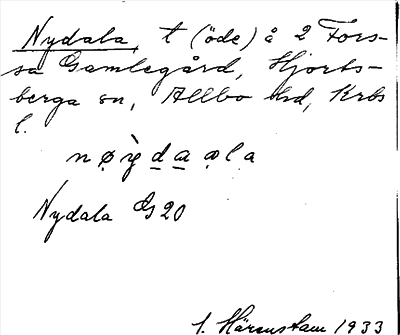 Nydala, t (öde) å 2 Fors-
sa Gamlegård, Hjorts-
berga sn, Allbo hd, Krbs
l.
Nydala G20
1. Härenstam 1933